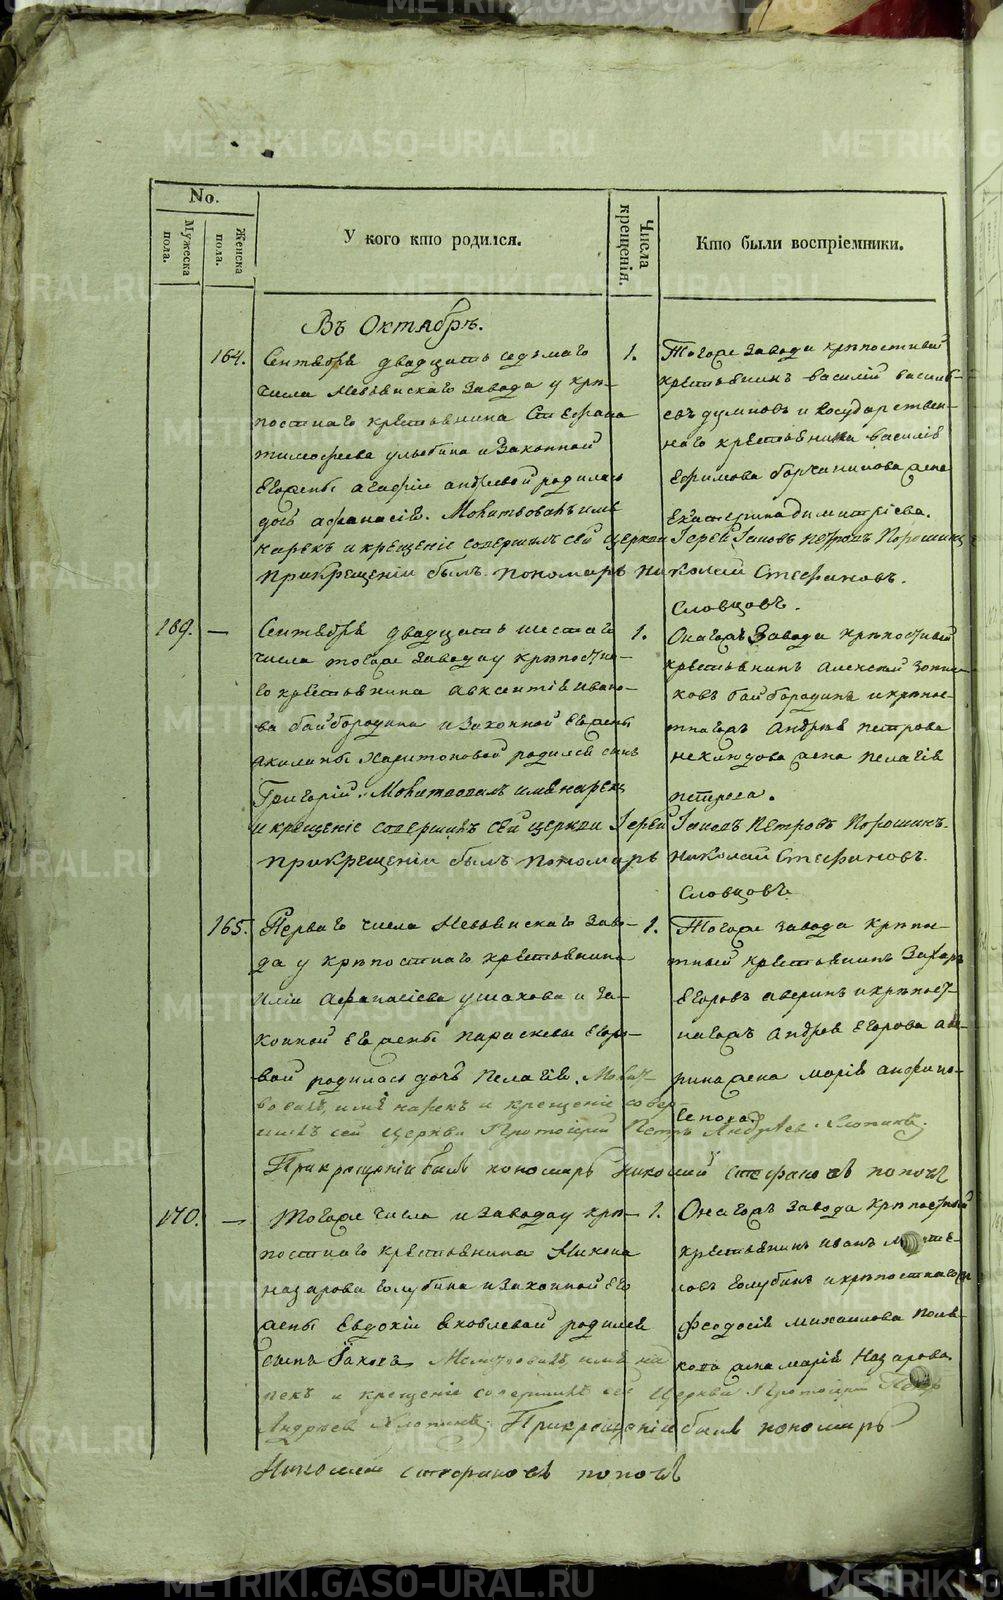 METRIKI.GASO-URAL.RU
No.
Мужеска пола.
Женска пола.
У кого кто родился.
Числа крещенія.
Кто были воспріемники.
Въ Октябрѣ.
164.
Сентября двадцать седьмаго
числа Невьянскаго завода у крѣ-
постнаго крестьянина Стефана
тимофеева улыбина и законной
Его жены агафіи андреевой родилась
дочь афанасія. Молитвовалъ имя
нарекъ и крещеніе совершилъ сей церкви Іерей Іаковъ Петровъ Порошинъ
Прикрещеніи былъ пономарь Николай Стефановъ.
Словцовъ.
1.
Тогоже завода крѣпостный
крестьянинъ василій василь-
евъ думновъ и государствен-
наго крестьянина василія
Ефимова жена
Екатерина димитріева.
169. —
Сентября двадцать шестаго
числа тогоже завода у крѣпостна-
го крестьянина авксентія ивано-
ва байбородина и законной Его жены
акилины Харитоновой родился сынъ
Григорій. Молитвовалъ имя нарекъ
и крещеніе совершилъ сей церкви Іерей Іаковъ Петровъ Порошинъ.
Прикрещеніи былъ пономарь Николай Стефановъ.
Словцовъ.
1.
Онагожъ завода крѣпостный
крестьянинъ алексей
байбородинъ и крѣпос-
тнагожъ андрея петрова
жена пелагія
петрова.
165.
Перваго числа Невьянскаго заво-
да у крѣпостнаго крестьянина
иліи афанасіева ушакова и за-
конной Его жены параскевы Егоро-
вой родилась дочь пелагія. Молит-
вовалъ, имя нарекъ и крещеніе совер-
шилъ сей церкви Протоіерей Петръ Андреевъ
Прикрещеніи былъ пономарь Николай стефановъ поповъ
1.
Тогоже завода крѣпос-
тный крестьянинъ Захаръ
Егоровъ аверинъ и крѣпост-
нагожъ андрея Егорова аве-
рина жена марія
170. —
Тогоже числа и завода у крѣ-
постнаго крестьянина Никона
назарова голубина и законной Его
жены Евдокіи яковлевой родился
сынъ Іаковъ Молитвовалъ, имя на-
рекъ и крещеніе совершилъ сей церкви Протоіерей Петръ
Андреевъ Прикрещеніи былъ пономарь
Николай стефановъ поповъ
1.
Онагожъ завода крѣпостный
крестьянинъ иванъ
голубинъ и крѣпостнагожъ
феодосія михаилова
жена марія Назарова